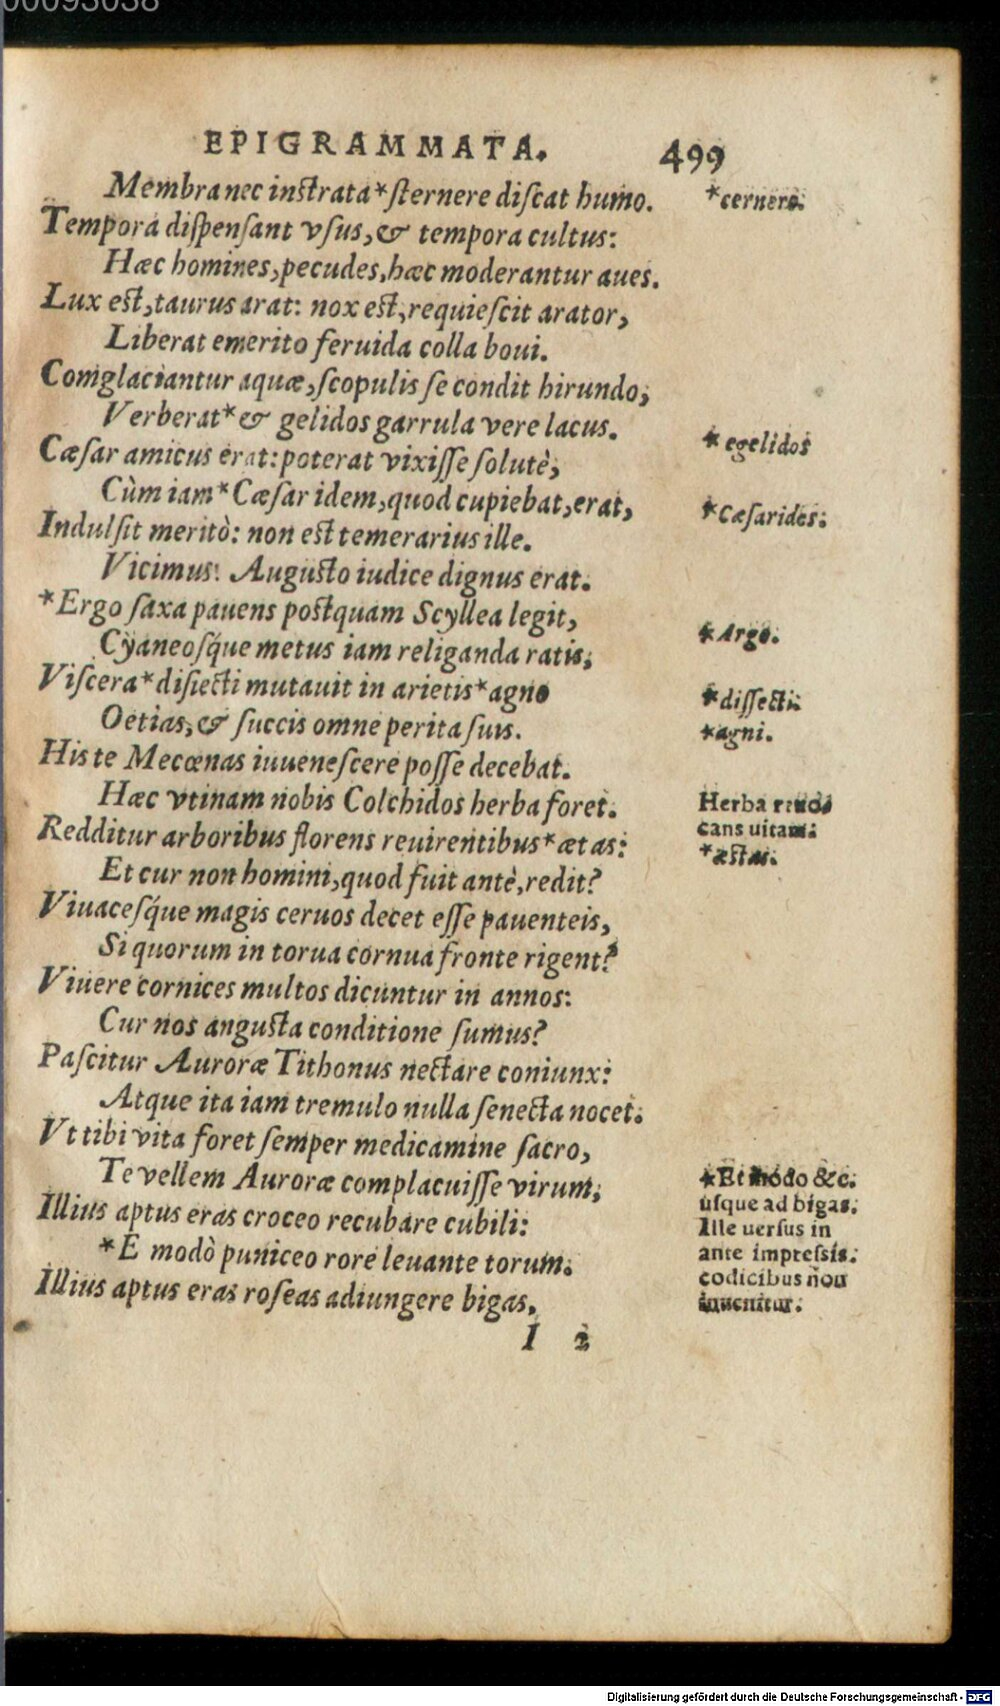 00093038
EPIGRAMMATA. 499
Membra nec instrata*sternere discat humo.
*cernere.
Tempora dispensant vsus,& tempora cultus:
Hæc homines,pecudes,hæc moderantur aues.
Lux est,taurus arat: nox est,requiescit arator,
Liberat emerito feruida colla boui.
Conglaciantur aquæ,scopulis se condit hirundo;
Verberat*& gelidos garrula vere lacus.
*egelidos
Cæsar amicus erat:poterat vixisse solutè,
Cùm iam*Cæsar idem,quod cupiebat,erat,
*Cæsarides:
Indulsit meritò: non est temerarius ille.
Vicimus: Augusto iudice dignus erat.
*Ergo saxa pauens postquam Scyllea legit,
*Argo.
Cyaneosq́ue metus iam religanda ratis;
Viscera*disiecti mutauit in arietis*agno
*dissecti:
Oetias,& succis omne perita suis.
*agni.
His te Mecœnas iuuenescere posse decebat.
Hæc vtinam nobis Colchidos herba foret.
Herba
cans uitam:
Redditur arboribus florens reuirentibus*ætas:
*æstas.
Et cur non homini,quod fuit antè,redit?
Viuacesq́ue magis ceruos decet esse pauenteis,
Si quorum in torua cornua fronte rigent?
Viuere cornices multos dicuntur in annos:
Cur nos angusta conditione sumus?
Pascitur Auroræ Tithonus nectare coniunx:
Atque ita iam tremulo nulla senecta nocet.
Vt tibi vita foret semper medicamine sacro,
Te vellem Auroræ complacuisse virum;
Illius aptus eras croceo recubare cubili:
*E modò puniceo rore leuante torum.
Illius aptus eras roseas adiungere bigas,
*Et modo &c.
usque ad bigas.
Ille uersus in
ante impressis.
codicibus non
inuenitur.
I 2
Digitalisierung gefördert durch die Deutsche Forschungsgemeinschaft - DFG